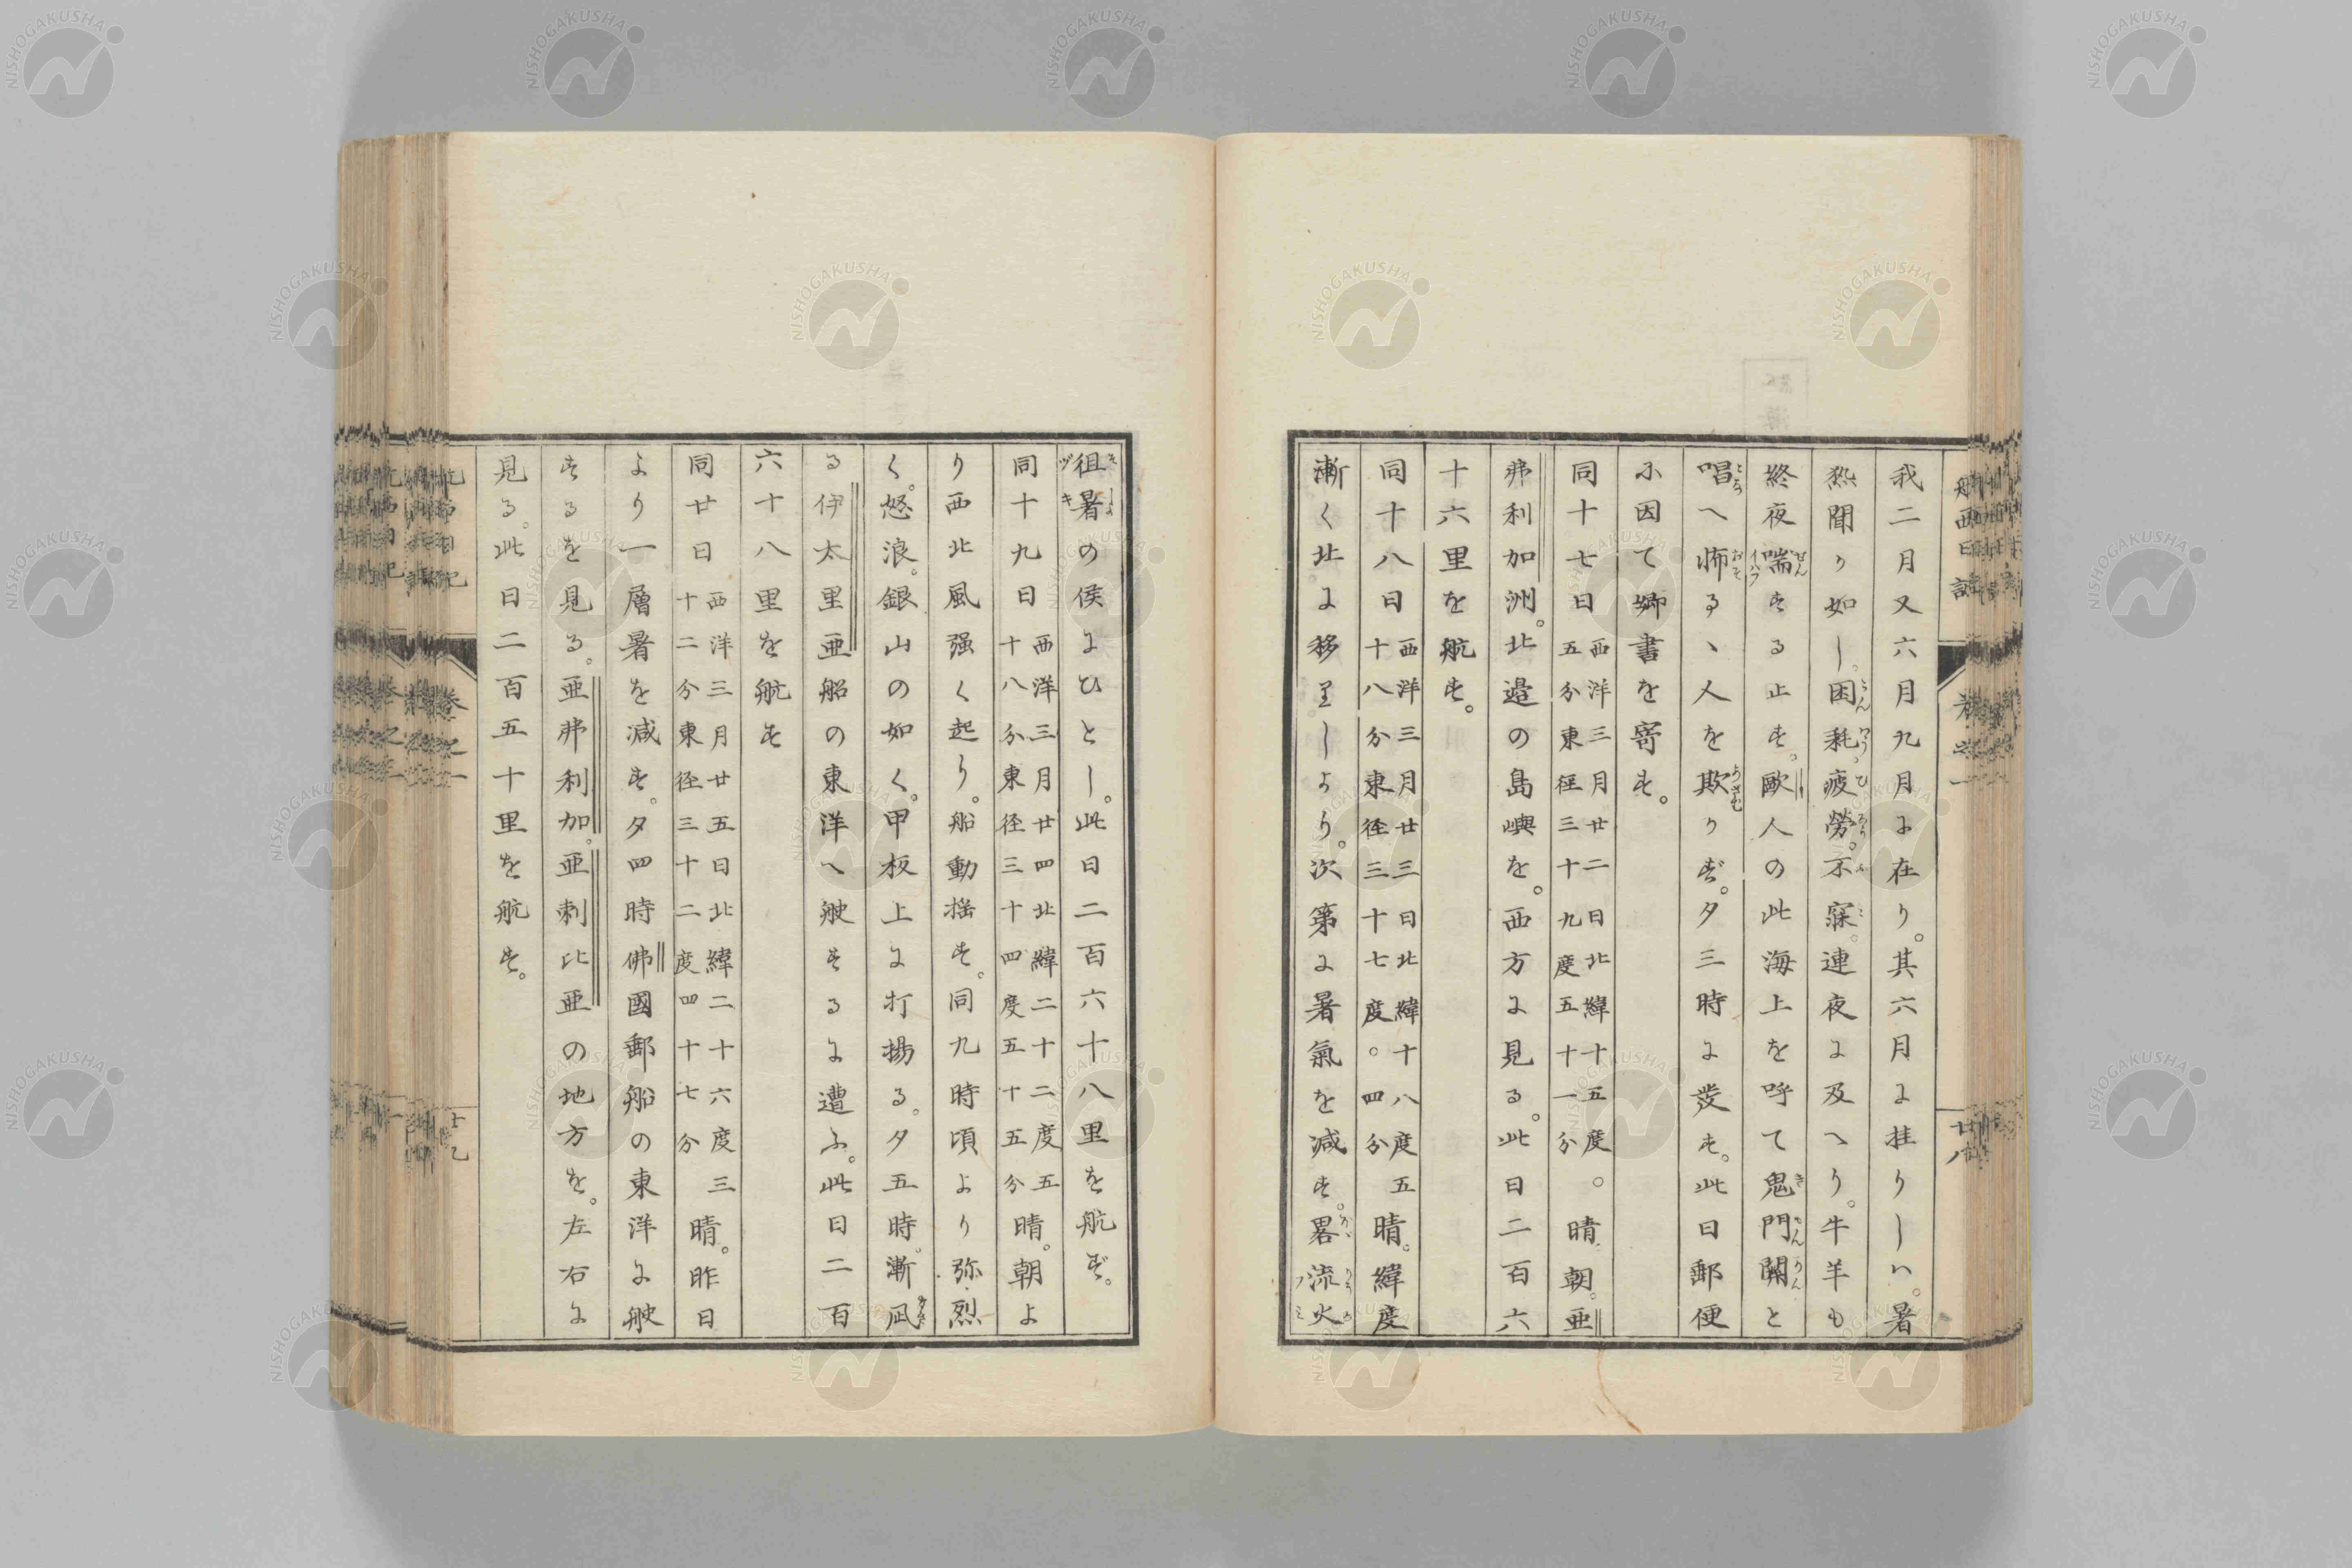 我二月又六月九月に在り。其六月に挂りしハ。暑
熱聞りの如し。困耗。疲勞。不寐。連夜に及へり。牛羊も
終夜喘する止す。歐人の此海上を呼て鬼門關と
唱へ怖るゝ人を欺りず。夕三時に發す。此日郵便
小因て郷書を寄す。
同十七日西洋三月廿二日北緯十五度。五分東径三十九度五十一分晴朝。亜
弗利加洲。北邉の島嶼を。西方に見る。此日二百六
十六里を航す。
同十八日西洋三月廿三日北緯十八度五十八分東径三十七度。四分晴。緯度
漸く北に移りしより。次第に暑氣を減す。畧流火
徂暑の侯にひとし。此日二百六十八里を航ず。
同十九日西洋三月廿四北緯二十二度五十八分東径三十四度五十五分晴。朝よ
り西北風强く起り。船動揺す。同九時頃より弥烈
く。怒浪。銀山の如く。甲板上に打揚る。夕五時。漸凪
る伊太里亜船の東洋へ駛するに遭ふ。此日二百
六十八里を航す
同廿日西洋三月廿五日北緯二十六度三十二分東径三十二度四十七分晴。昨日
より一層暑を減す。夕四時佛國郵船の東洋に駛
するを見る。亜弗利加。亜剌比亜の地方を。左右に
見る。此日二百五十里を航す。
航西日記
卷之一
NISHOGAKUSHA